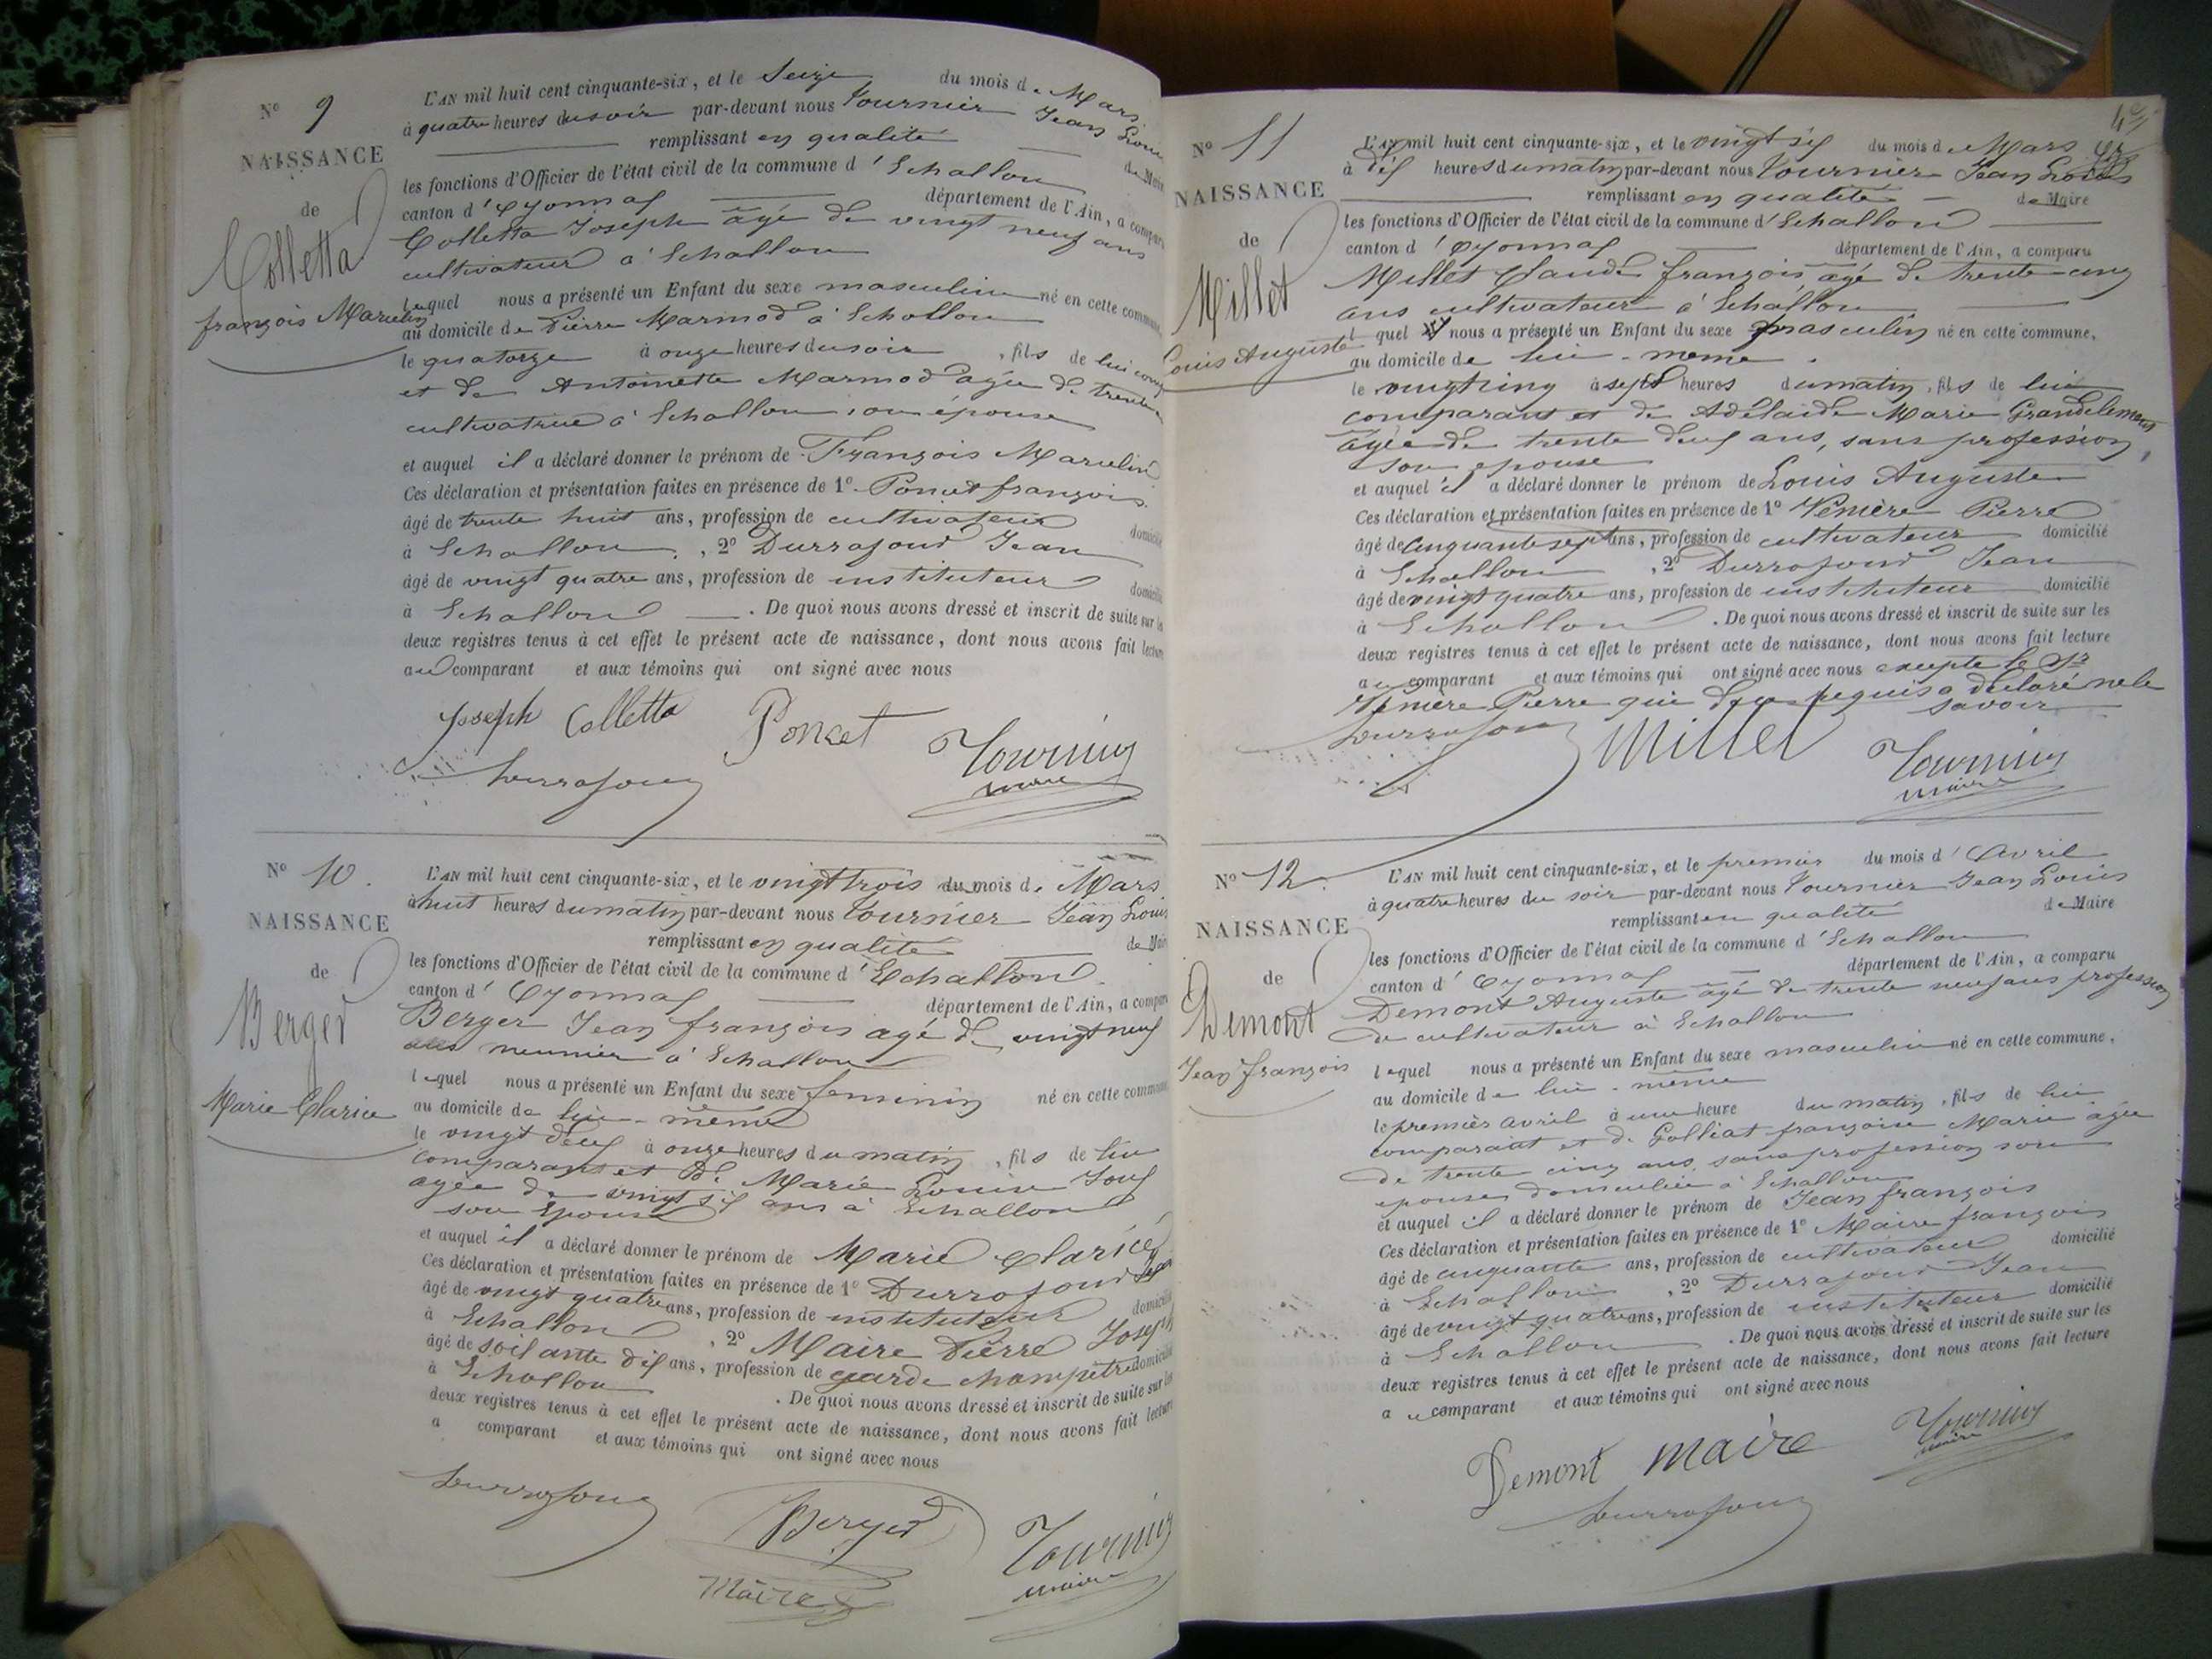 N° 9
NAISSANCE
de
Colletta
françois Marcelin
L'AN mil huit cent cinquante-six, et le Seize du mois de Mars
à quatre heures du soir par-devant nous Tournier Jean Louis
remplissant en qualité de Maire
les fonctions d'Officier de l'état civil de la commune d'Echallon
canton d'Oyonnax département de l'Ain, a comparu
Colletta Joseph âgé de vingt neuf ans
cultivateur à Echallon
lequel nous a présenté un Enfant du sexe masculin né en cette commune
au domicile de Pierre Marmod à Echallon
le quatorze à onze heures du soir, fils de lui
et de Antoinette Marmod âgée de trente
cultivatrice à Echallon son épouse
et auquel il a déclaré donner le prénom de François Marcelin
Ces déclaration et présentation faites en présence de 1° Poncet françois
âgé de trente huit ans, profession de cultivateur domicilié
à Echallon, 2° Durrafour Jean
âgé de vingt quatre ans, profession de instituteur domicilié
à Echallon. De quoi nous avons dressé et inscrit de suite sur les
deux registres tenus à cet effet le présent acte de naissance, dont nous avons fait lecture
au comparant et aux témoins qui ont signé avec nous
Joseph Colletta Poncet Tournier
Durrafour maire
N° 10.
NAISSANCE
de
Berger
Marie Clarice
L'AN mil huit cent cinquante-six, et le vingt trois du mois de Mars
à huit heures du matin par-devant nous Tournier Jean Louis
remplissant en qualité de Maire
les fonctions d'Officier de l'état civil de la commune d'Echallon.
canton d'Oyonnax département de l'Ain, a comparu
Berger Jean françois âgé de vingt neuf
ans meunier à Echallon
lequel nous a présenté un Enfant du sexe feminin né en cette commune
au domicile de lui-même
le vingt deux à onze heures du matin, fils de lui
comparant et de Marie Louise
agée de vingt six ans à Echallon
son Epouse
et auquel il a déclaré donner le prénom de Marie Clarice
Ces déclaration et présentation faites en présence de 1° Durrafour Jean
âgé de vingt quatre ans, profession de instituteur domicilié
à Echallon, 2° Maire Pierre Joseph
âgé de soixante dix ans, profession de garde champêtre domicilié
à Echallon. De quoi nous avons dressé et inscrit de suite sur les
deux registres tenus à cet effet le présent acte de naissance, dont nous avons fait lecture
a comparant et aux témoins qui ont signé avec nous
Durrafour Berger Tournier
Maire maire
N° 11
NAISSANCE
de
Millet
Louis Auguste
L'AN mil huit cent cinquante-six, et le vingt six du mois de Mars
à dix heures du matin par-devant nous Tournier Jean Louis
remplissant en qualité de Maire
les fonctions d'Officier de l'état civil de la commune d'Echallon
canton d'Oyonnax département de l'Ain, a comparu
Millet Claude françois âgé de trente cinq
ans cultivateur à Echallon
lquel nous a présenté un Enfant du sexe masculin né en cette commune,
au domicile de lui-même.
le vingt cinq à sept heures du matin, fils de lui
comparant et de Adélaide Marie Grandclement
âgée de trente deux ans, sans profession,
son epouse
et auquel il a déclaré donner le prénom de Louis Auguste
Ces déclaration et présentation faites en présence de 1° Pierre
âgé de cinquante sept ans, profession de cultivateur domicilié
à Echallon, 2° Durrafour Jean
âgé de vingt quatre ans, profession de instituteur domicilié
à Echallon. De quoi nous avons dressé et inscrit de suite sur les
deux registres tenus à cet effet le présent acte de naissance, dont nous avons fait lecture
au comparant et aux témoins qui ont signé avec nous excepte le Sr
Pierre qui de ce requis a déclaré ne le
savoir
Durrafour Millet Tournier
maire
N° 12.
NAISSANCE
de
Demont
Jean françois
L'AN mil huit cent cinquante-six, et le premier du mois d'Avril
à quatre heures du soir par-devant nous Tournier Jean Louis
remplissant en qualité de Maire
les fonctions d'Officier de l'état civil de la commune d'Echallon
canton d'Oyonnax département de l'Ain, a comparu
Demont Auguste âgé de trente neuf ans profession
de cultivateur à Echallon
lequel nous a présenté un Enfant du sexe masculin né en cette commune,
au domicile de lui-même
le premier avril à une heure du matin, fils de lui
comparant et de Golliat françoise Marie âgée
de trente cinq ans, sans profession son
epouse domiciliée à Echallon
et auquel il a déclaré donner le prénom de Jean françois
Ces déclaration et présentation faites en présence de 1° Maire françois
âgé de cinquante ans, profession de cultivateur domicilié
à Echallon, 2° Durrafour Jean
âgé de vingt quatre ans, profession de instituteur domicilié
à Echallon. De quoi nous avons dressé et inscrit de suite sur les
deux registres tenus à cet effet le présent acte de naissance, dont nous avons fait lecture
au comparant et aux témoins qui ont signé avec nous
Demont maire Tournier
Durrafour maire